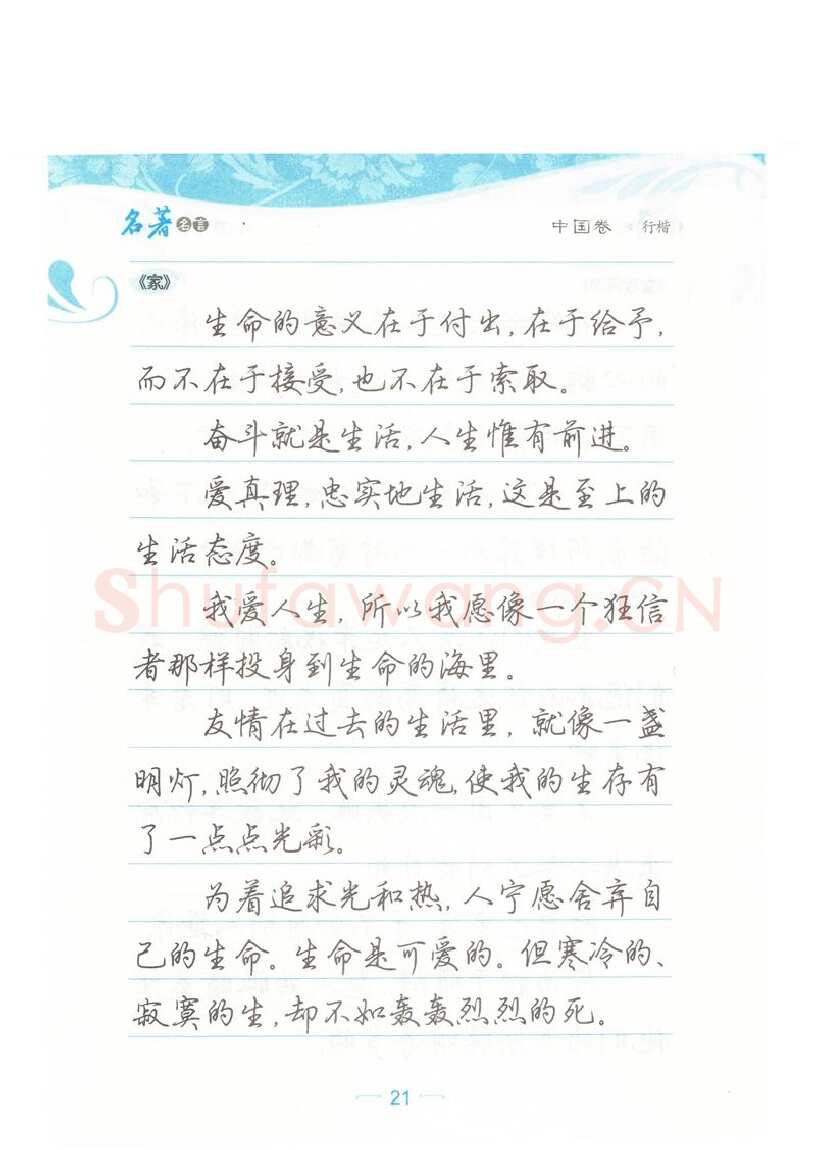 名著名言
中国卷 行楷
《家》
生命的意义在于付出,在于给予,
而不在于接受,也不在于索取。
奋斗就是生活,人生惟有前进。
爱真理,忠实地生活,这是至上的
生活态度。
我爱人生,所以我愿像一个狂信
者那样投身到生命的海里。
友情在过去的生活里,就像一盏
明灯,照彻了我的灵魂,使我的生存有
了一点点光彩。
为着追求光和热,人宁愿舍弃自
己的生命。生命是可爱的。但寒冷的、
寂寞的生,却不如轰轰烈烈的死。
21
Shufawang.CN